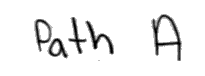 Path A